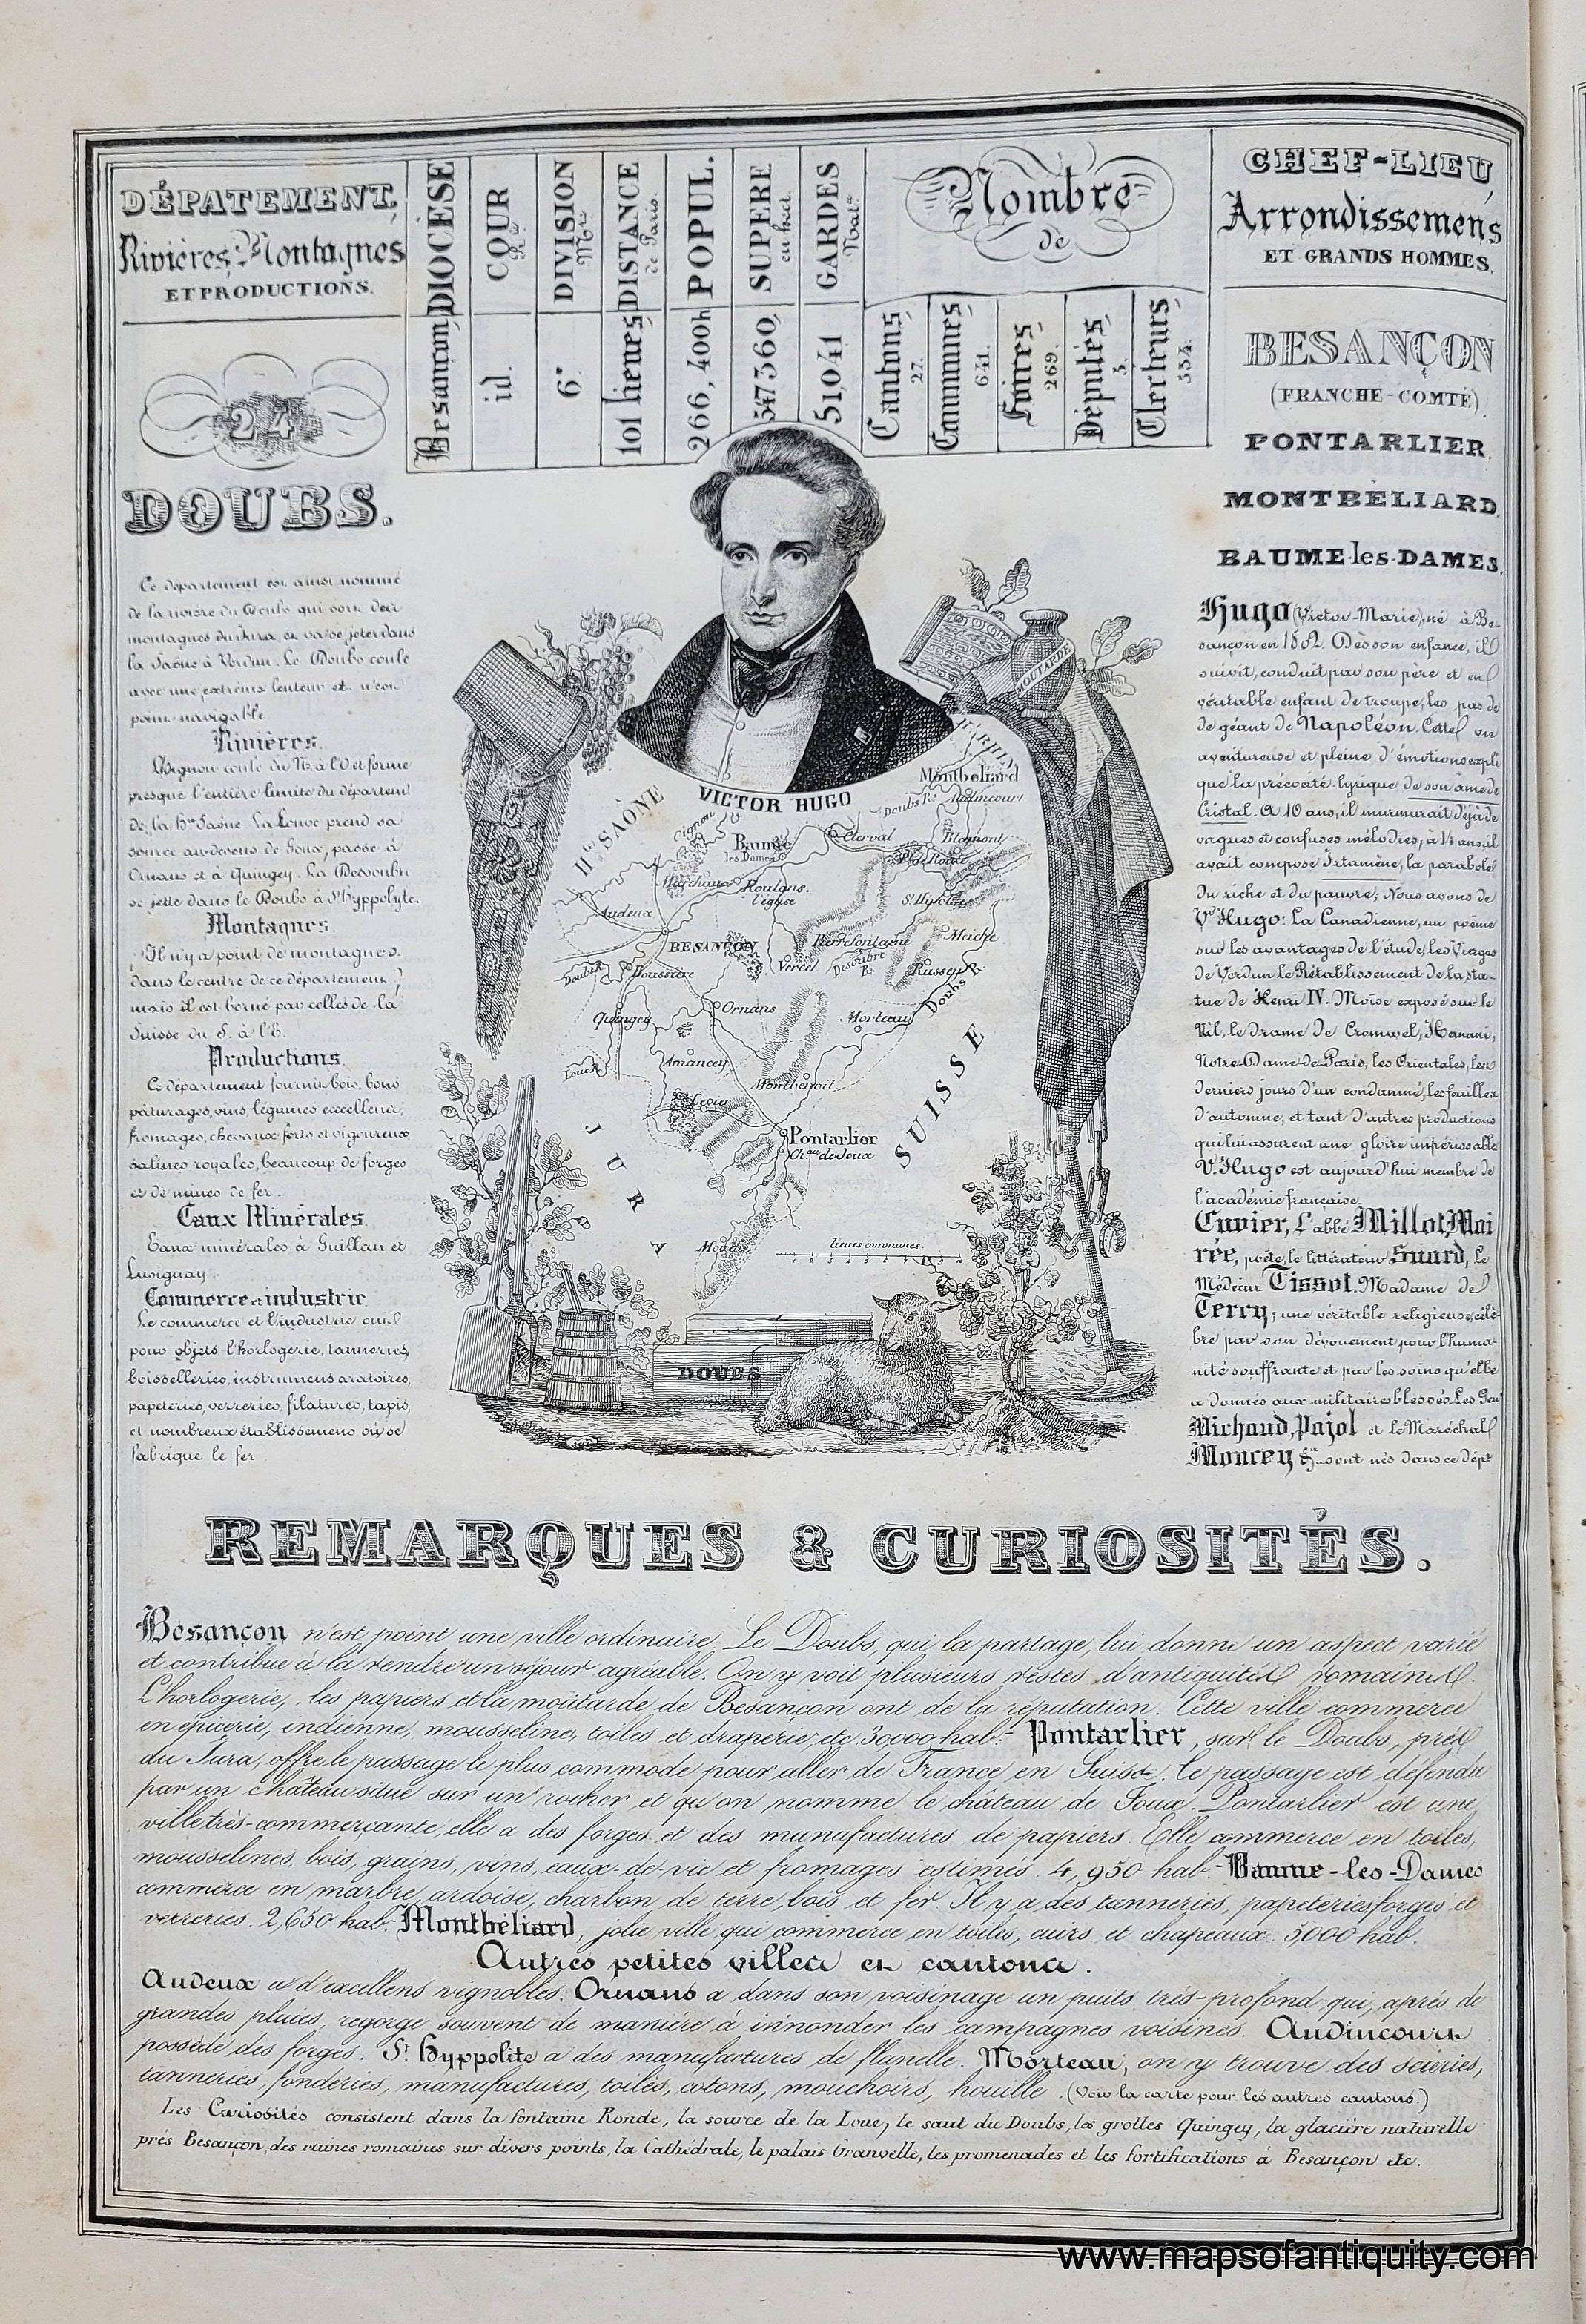 DÉPATEMENT.
Rivières, Montagnes
ET PRODUCTIONS.
DIOCÈSE
Besançon
COUR
Rle
id.
DIVISION
Mre
6e
DISTANCE
de Paris.
101 lieues
POPUL.
266,400h
SUPERE
en hect.
547360
GARDES
Natles
51,041
Nombre
de
Cantons
27.
Communes
641.
Foires
269.
Députés
5.
Electeurs
534.
CHEF-LIEU
Arrondissemens
ET GRANDS HOMMES.
24
DOUBS.
Ce département est ainsi nommé
de la rivière du Doubs qui sort des
montagnes du Jura, et va se jeter dans
la Saône à Verdun. Le Doubs coule
avec une extrême lenteur et n'est
point navigable
Rivières.
L'Oignon coule du N. à l'O et forme
presque l'entière limite du départemt
de la Hte Saône. La Louve prend sa
source au-dessus de Goux, passe à
Ornans et à Quingey. La Dessoubre
se jette dans le Doubs à St Hyppolyte.
Montagnes.
Il n'y a point de montagnes
dans le centre de ce département,
mais il est borné par celles de la
Suisse du S. à l'E.
Productions.
Ce département fournit bois, bons
pâturages, vins, légumes excellens,
fromages, chevaux forts et vigoureux,
salines royales, beaucoup de forges
et de mines de fer.
Eaux Minérales.
Eaux minérales à Guillan et
Lusignay.
Commerce et industrie.
Le commerce et l'industrie ont
pour objets l'horlogerie, tanneries,
boisselleries, instrumens aratoires,
papeteries, verreries, filatures, tapis,
et nombreux établissemens où se
fabrique le fer
MOUTARDE
VICTOR HUGO
Ht RHIN
Hte SAÔNE
Montbeliard
Doubs R.
Audincourt
Oignon
Baume
les Dames
Clerval
Blamont
Roulans.
l'église
St Hyp
Audeux
BESANÇON
Pierrefontaine
Maiche
Desoubre
R.
Vercel
Russey
Doubs R.
Doubs R.
Boussiere
Quingey
Ornans
Morteau
Loue R.
Amancey
Montbenoit
Levier
Pontarlier
Chau de Joux
SUISSE
JURA
Mouthe
lieues communes.
DOUBS
BESANÇON
(FRANCHE-COMTÉ)
PONTARLIER.
MONTBÉLIARD.
BAUME-les-DAMES.
Hugo (Victor-Marie), né à Be-
sançon en 1802. Dès son enfance, il
suivit, conduit par son père et en
véritable enfant de troupe, les pas de
de géant de Napoléon. Cette vie
aventureuse et pleine d'émotions expli
que la précocité lyrique de son âme de
Cristal. A 10 ans, il murmurait déjà de
vagues et confuses mélodies, à 14 ans, il
avait composé Irtamène, la parabole
du riche et du pauvre; Nous avons de
Vor Hugo: La Canadienne, un poème
sur les avantages de l'étude, les Vierges
de Verdun le Rétablissement de la sta-
tue de Henri IV. Moïse exposé sur le
Nil, le drame de Cromwel, Hanani,
Notre-Dame-de-Paris, les Orientales, les
derniers jours d'un condamné, les feuilles
d'automne, et tant d'autres productions
qui lui assurent une gloire impérissable
V. Hugo est aujourd'hui membre de
l'académie française.
Cuvier, l'abbé Millot, Mai
rée, poète, le littérateur Suard, Le
Médecin Tissot. Madame de
Tercy; une véritable religieuse, célè-
bre par son dévouement pour l'huma-
nité souffrante et par les soins qu'elle
a donnés aux militaires blessés. Les Gen
Michaud, Pajol et le Maréchal
Moncey &a sont nés dans ce dépt
REMARQUES & CURIOSITÉS.
Besançon n'est point une ville ordinaire. Le Doubs, qui la partage, lui donne un aspect varié
et contribue à la rendre un séjour agréable. On y voit plusieurs restes d'antiquités romaines.
L'horlogerie, les papiers et la moutarde de Besançon ont de la réputation. Cette ville commerce
en épicerie, indienne, mousseline, toiles et draperie, etc. 30,000 hab.- Pontarlier, sur le Doubs, près
du Jura, offre le passage le plus commode pour aller de France en Suisse. Ce passage est défendu
par un château situé sur un rocher et qu'on nomme le château de Joux. Pontarlier est une
ville très-commerçante, elle a des forges et des manufactures de papiers. Elle commerce en toiles,
mousselines, bois, grains, vins, eaux-de-vie et fromages estimés. 4,950 hab.- Baume-les-Dames
commerce en marbre, ardoise, charbon de terre, bois et fer. Il y a des tanneries, papeteries, forges et
verreries. 2,650 hab. Montbéliard, jolie ville qui commerce en toiles, cuirs et chapeaux. 5,000 hab.
Autres petites villes en cantons.
Audeux a d'excellens vignobles. Ornans a dans son voisinage un puits très-profond qui, après de
grandes pluies, regorge souvent de manière à innonder les campagnes voisines. Audincourt
possède des forges. St Hyppolite a des manufactures de flanelle. Morteau, on y trouve des scieries,
tanneries, fonderies, manufactures, toiles, cotons, mouchoirs, houille. (Voir la carte pour les autres cantons.)
Les Curiosités consistent dans la fontaine Ronde, la source de la Loue, le saut du Doubs, les grottes Quingey, la glacière naturelle
près Besançon, des ruines romaines sur divers points, la Cathédrale, le palais Granvelle, les promenades et les fortifications à Besançon etc.
www.mapsofantiquity.com